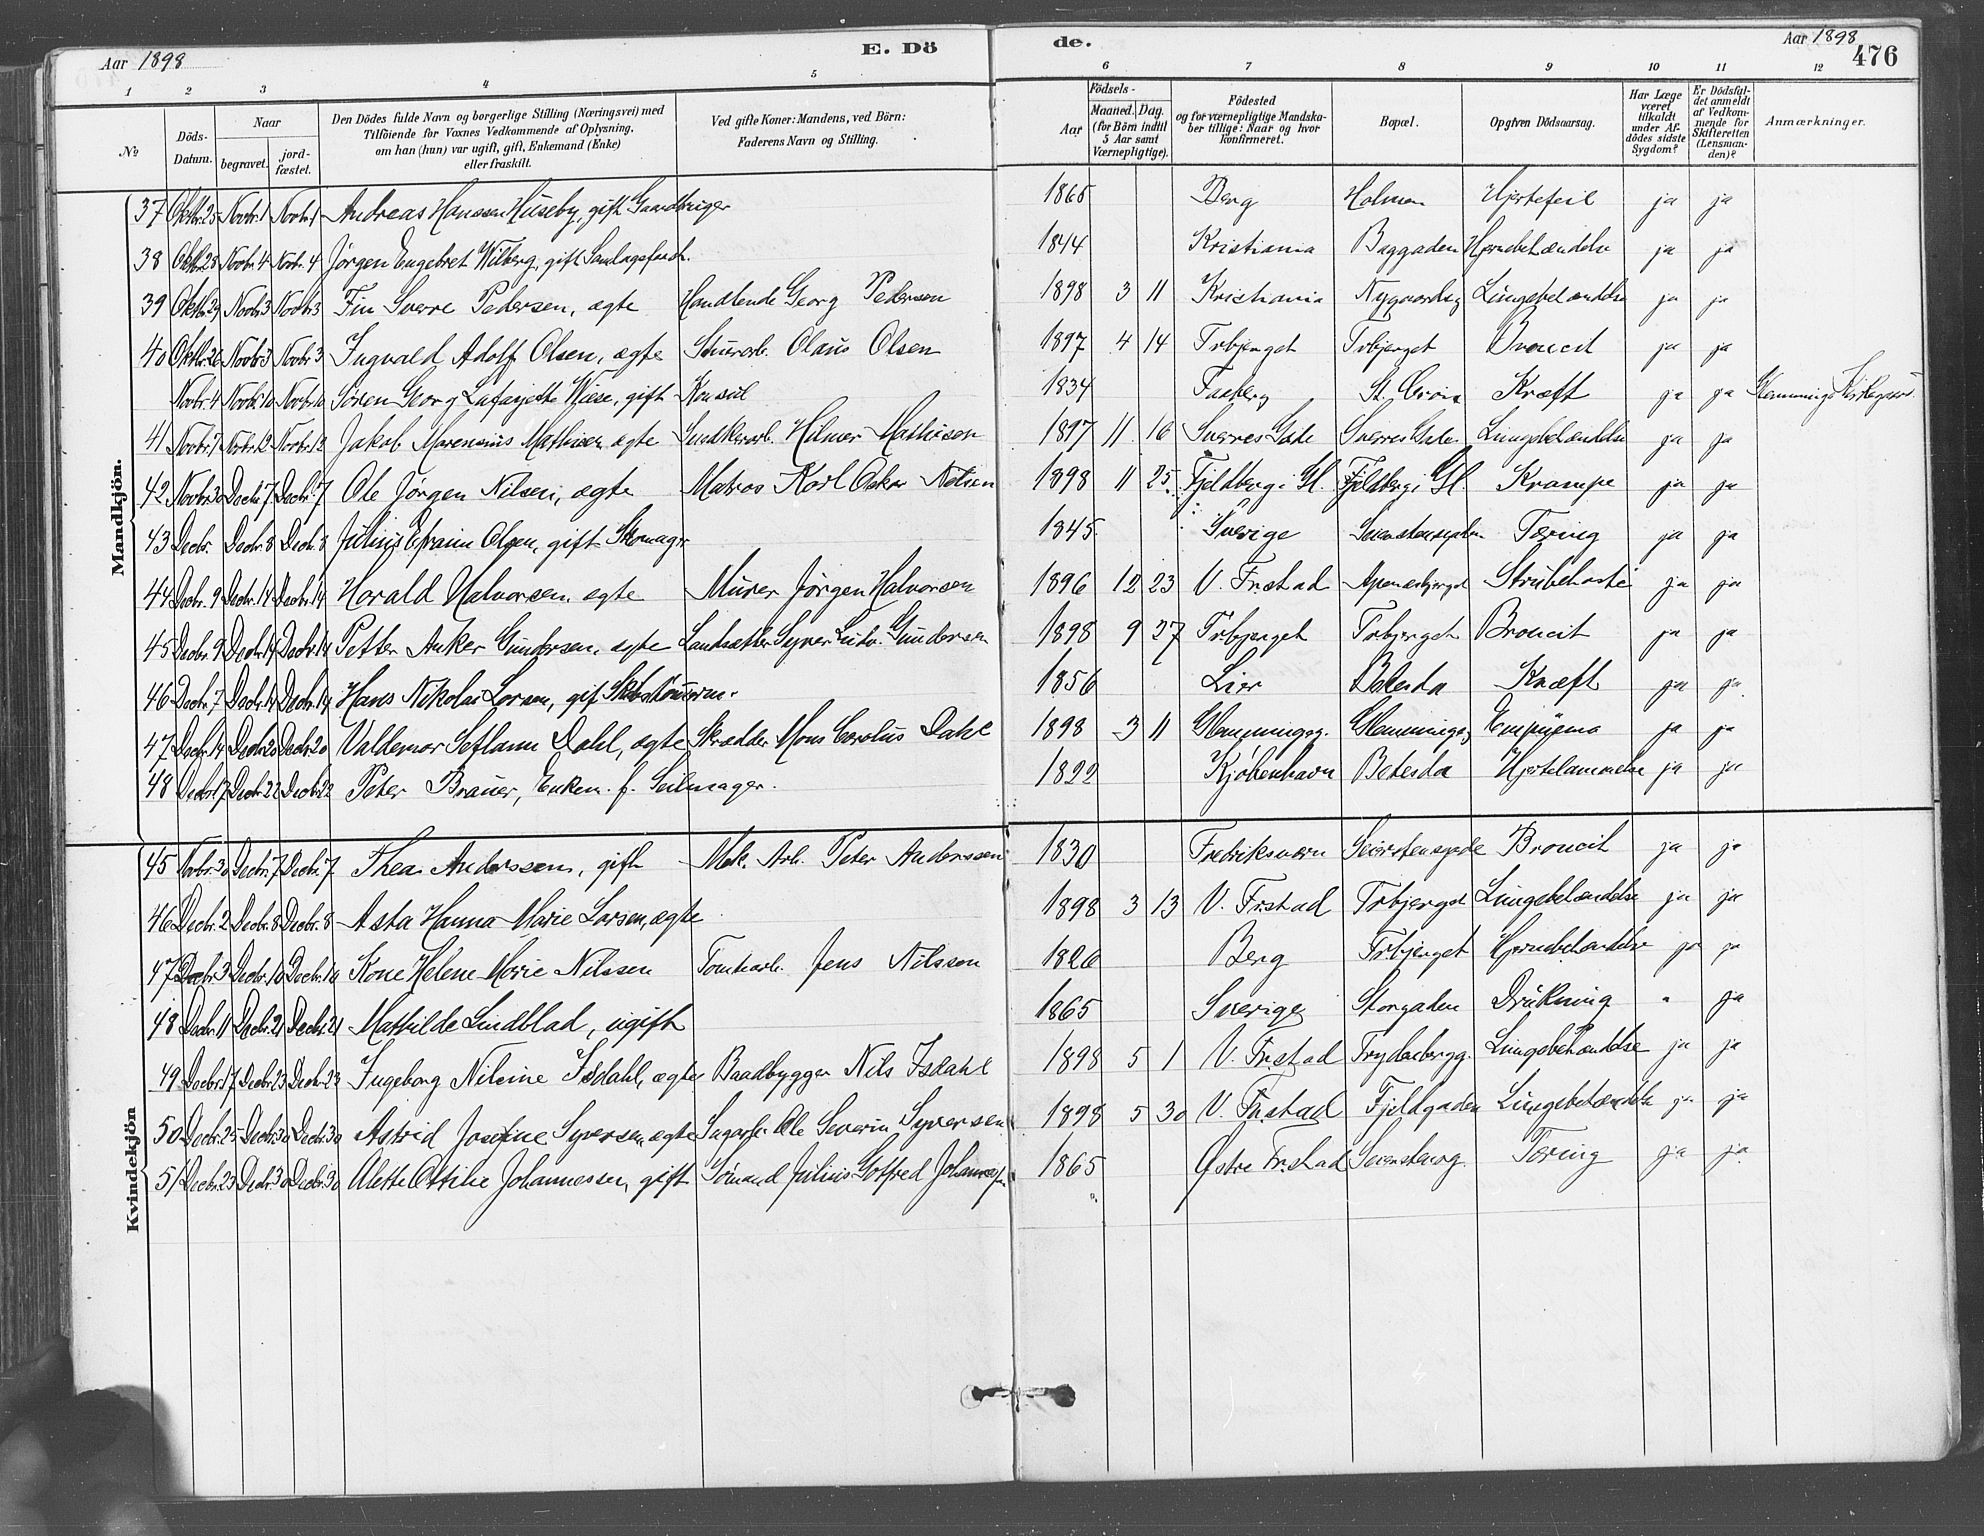 Aar 1898 E. Dö de. Aar 1898 476
1 2 3 4 5 6 7 8 9 10 11 12
No Döds-Datum. Naar begravet. jordfæstet. Den Dödes fulde Navn og borgerlige Stilling (Næringsvei) med Tilföiende for Voxnes Vedkommende af Oplysning, om han (hun) var ugift, gift, Enkemand (Enke) eller fraskilt. Ved gifte Koner: Mandens, ved Börn: Faderens Navn og Stilling. Födsels- Aar Maaned. Dag. (for Börn indtil 5 Aar samt Værnepligtige). Födested og for værnepligtige Mandskaber tillige: Naar og hvor konfirmeret. Bopæl. Opgiven Dödsaarsag. Har Læge været tilkaldt under Afdödes sidste Sygdom? Er Dödsfaldet anmeldt af Vedkommende for Skifteretten (Lensmanden)? Anmærkninger.
Mandkjön.
37 Oktbr. 25 Novbr. 1 Novbr. 1 Andreas Hanssen Huseby, gift 1865 Berg Holmen Hjertefeil ja ja
38 Oktbr. 28 Novbr. 4 Novbr. 4 Jørgen Engebret Wilberg, gift 1844 Kristiania Baggaden Hjernebetændelse ja ja
39 Oktbr. 29 Novbr. 3 Novbr. 3 Fin Sverre Pedersen, ægte Handlende Georg Pedersen 1898 3 11 Kristiania Nygaardsg Lungebetændelse ja ja
40 Oktbr. 26 Novbr. 3 Novbr. 3 Ingvald Adolf Olsen, ægte Olaus Olsen 1897 4 14 Trbjerget Trbjerget Broncit ja ja
Novbr. 4 Novbr. 10 Novbr. 10 Søren Georg Lafayette Wiese, gift Konsul 1834 Faaberg St. Croix Kræft ja ja Glemminge
41 Novbr. 7 Novbr. 12 Novbr. 12 Jakob Marenius Mathisen ægte Snedkerarb. Hilmer Mathisen 1897 11 16 Sverres Gade Sverres Gade Lungebetændelse ja ja
42 Novbr. 30 Decbr. 7 Decbr. 7 Ole Jørgen Nilsen, ægte Matros Karl Oskar Nilsen 1898 11 25 Fjeldberg i Gl. Fjeldberg i Gl. Krampe ja ja
43 Decbr. Decbr. 8 Decbr. 8 Julius Efraim Olsen, gift Skomager 1845 Sverige Tæring ja ja
44 Decbr. 9 Decbr. 14 Decbr. 14 Harald Halvorsen, ægte Murer Jørgen Halvorsen 1896 12 23 V. Fr.stad Apenæsbjerget Strubehoste ja ja
45 Decbr. 9 Decbr. 14 Decbr. 14 Petter Anker Gundersen, ægte Syver Gundersen 1898 9 27 Trbjerget Trbjerget Broncit ja ja
46 Decbr. 7 Decbr. 14 Decbr. 14 Hans Nikolai Larsen, gif 1856 Lier Betesda Kræft ja ja
47 Decbr. 14 Decbr. 20 Decbr. 20 Valdemar Dahl, ægte Skrædder Mons Carolus Dahl 1898 3 11 Glemmingeg. Glemmingeg Empyema ja ja
48 Decbr. 17 Decbr. 22 Decbr. 22 Peter Brauer, Enkem. f. Seilmager. 1822 Kjøbenhavn Betesda Hjertelammelse ja ja
Kvindekjön
45 Novbr. 30 Decbr. 7 Decbr. 7 Thea Anderssen, gift Mek. Arb. Peter Anderssen 1830 Fredriksværn Seierstensgade Broncit ja ja
46 Decbr. 2 Decbr. 8 Decbr. 8 Asta Hanna Marie Larsen, ægte 1898 3 13 V. Fr.stad Trbjerget Lungebetændelse ja ja
47 Decbr. 3 Decbr. 10 Decbr. 10 Kone Helene Marie Nilssen Tomtearb. Jens Nilssen 1826 Berg Trbjerget Hjernebetændelse ja ja
48 Decbr. 11 Decbr. 21 Decbr. 21 Mathilde Lindblad, ugift 1865 Sverige Storgaden Drukning " ja
49 Decbr. 17 Decbr. 23 Decbr. 23 Ingeborg Nilsine Isdahl, ægte Baadbygger Nils Isdahl 1898 5 1 V. Fr.stad Lungebetændelse ja ja
50 Decbr. 25 Decbr. 30 Decbr. 30 Astrid Josefine Syversen, ægte Sagarb. Ole Severin Syversen 1898 5 30 V. Fr.stad Fjeldgaden Lungebetændelse ja ja
51 Decbr. 23 Decbr. 30 Decbr. 30 Alette Ottilie Johannessen, gift Sømand Julius Gotfred Johannessen 1865 Østre Fr.stad Tæring ja ja